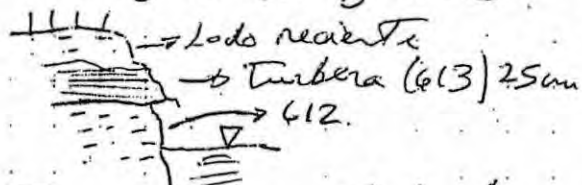 → Lodo reciente
→ Turbera (613) 25cm
→ 612.